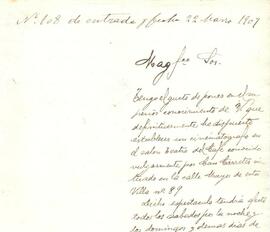 Nº 808 de entrada y fecha 22 Marzo 1907
Magfco Sor.
Tengo el gusto de poner en el su-
perior conocimiento de V. que
definitivamente he dispuesto
establecer un cinematógrafo en
el salon Teatro del Café conocido
vulgarmente por
tuado en la calle Mayor de esta
Villa nº 89
Dicho espectáculo tendrá efecto
todos los sabados por la noche y
los domingos y demas dias de